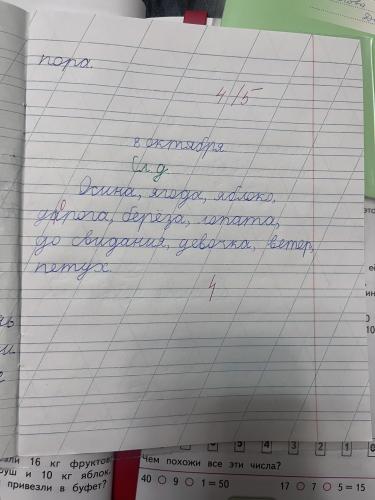 пора.
4/5
8 октября
Сл.д.
Осина, ягода, яблоко,
дорога, береза, лопата,
до свидания, девочка, ветер,
петух.
4
5 4 3 2 1 0
16 кг фруктов
и 10 кг яблок.
привезли в буфет?
Чем похожи все эти числа?
40 9 1 = 50
17 7 5 = 15